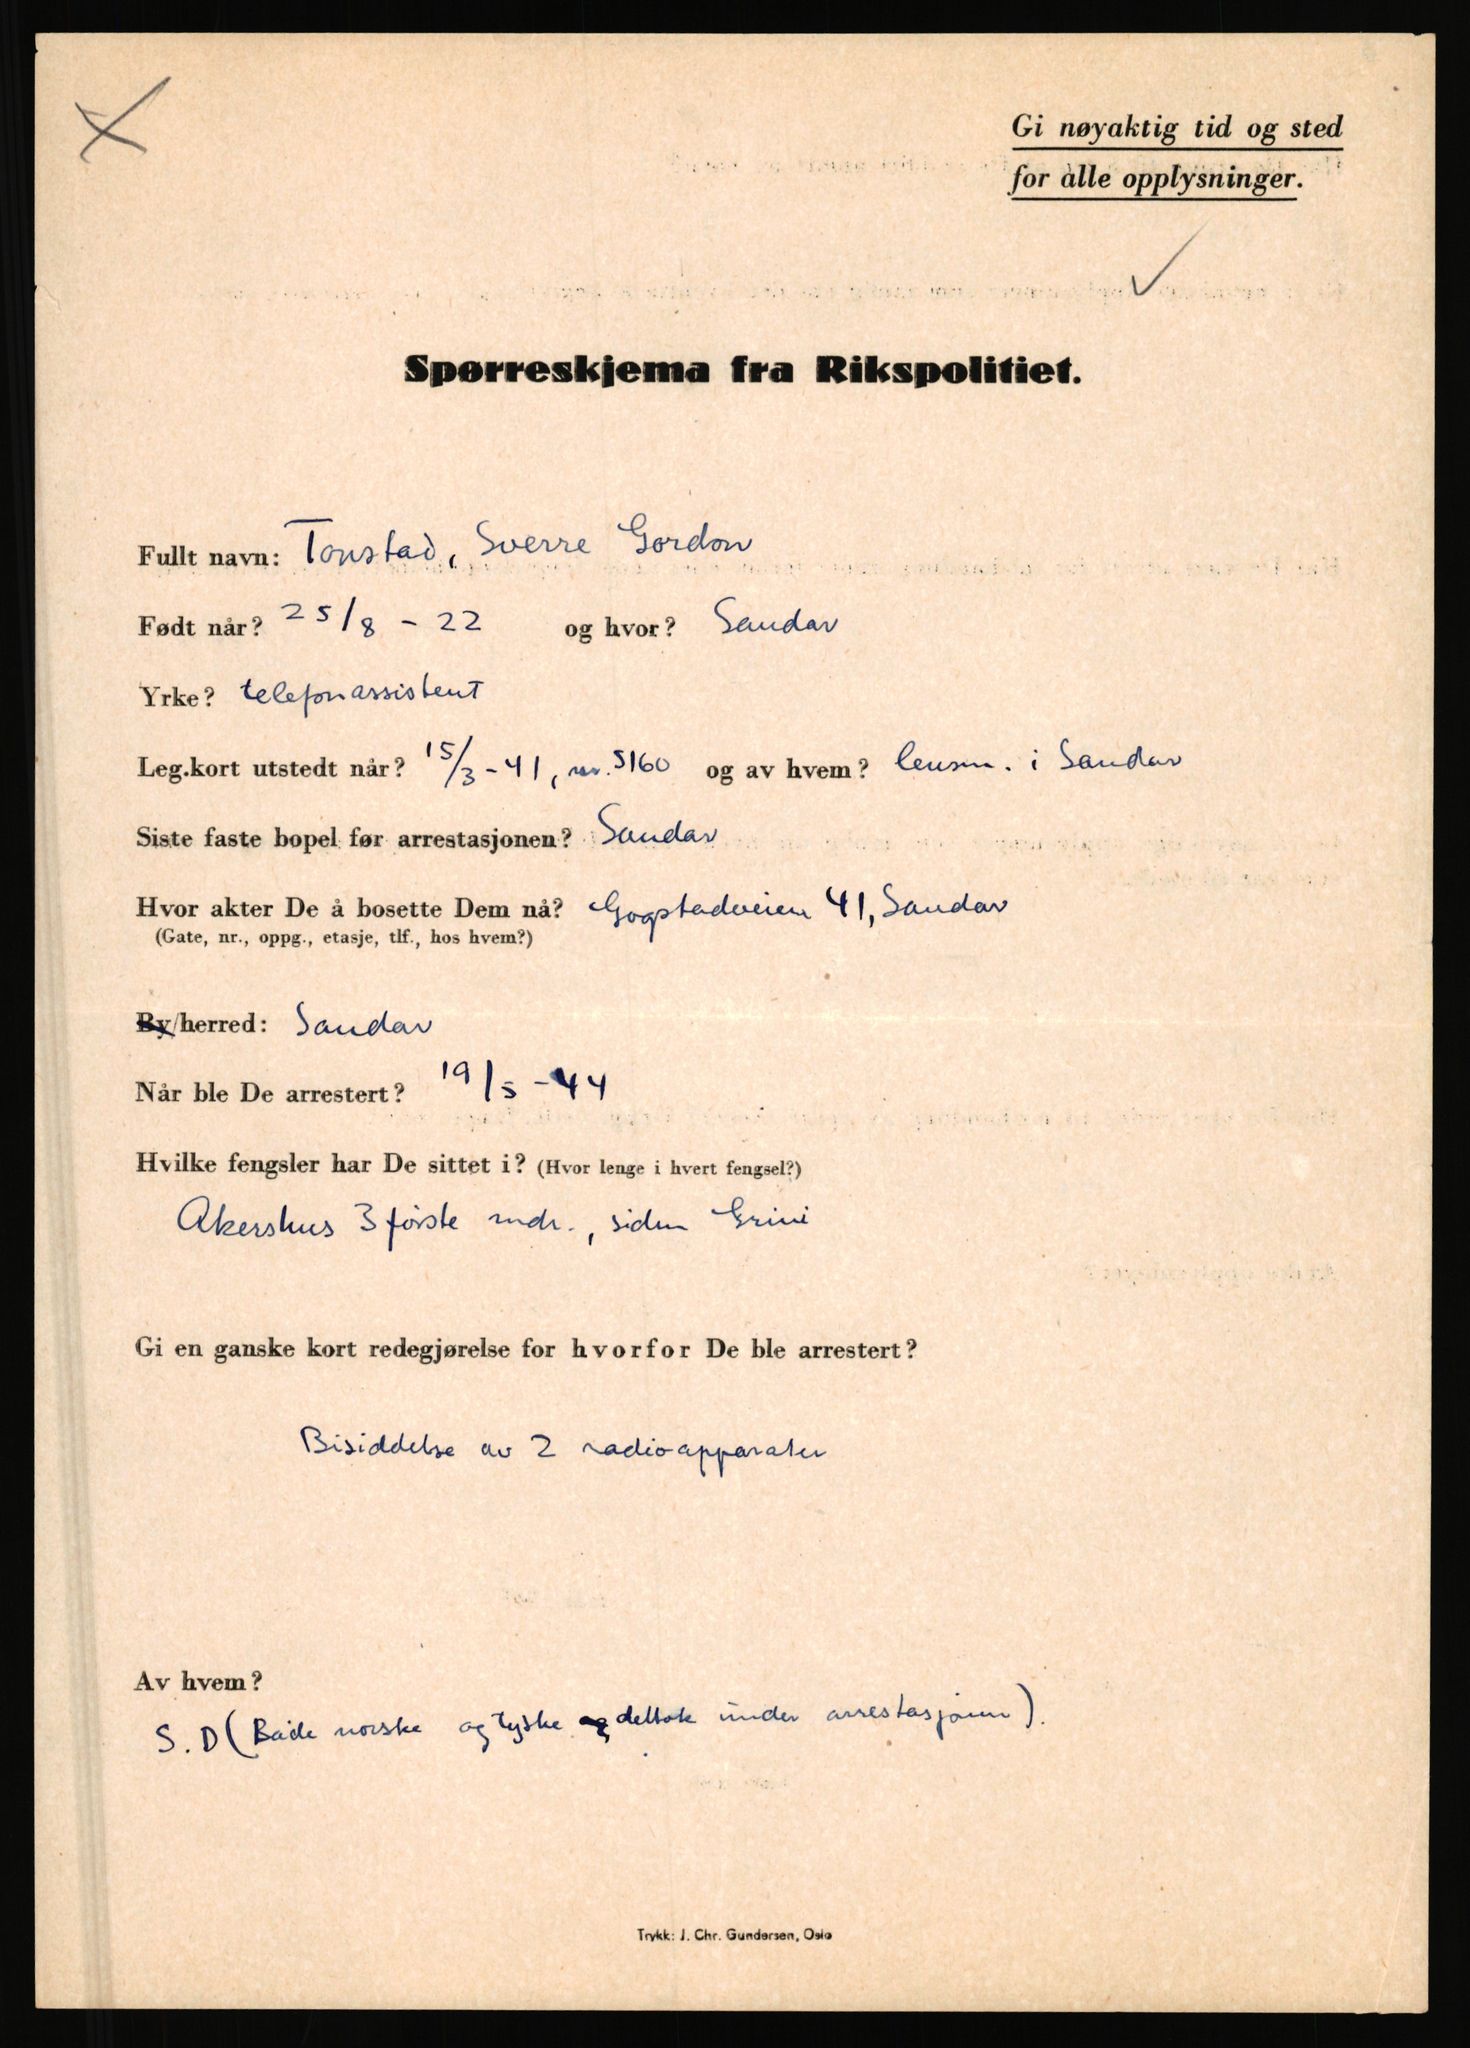 Gi nøyaktig tid og sted
for alle opplysninger.
Spørreskjema fra Rikspolitiet.
Fullt navn: Tonstad, Sverre Gordon
Født når? 25/8 - 22 og hvor? Sandar
Yrke? telefonassistent
Leg.kort utstedt når? 15/3 - 41, nr. 5160 og av hvem? lensm. i Sandar
Siste faste bopel før arrestasjonen? Sandar
Hvor akter De å bosette Dem nå? Gogstadveien 41, Sandar
(Gate, nr., oppg., etasje, tlf., hos hvem?)
By/herred: Sandar
Når ble De arrestert? 19/5 - 44
Hvilke fengsler har De sittet i? (Hvor lenge i hvert fengsel?)
Akershus 3 første mdr., siden Grini
Gi en ganske kort redegjørelse for hvorfor De ble arrestert?
Bisiddelse av 2 radioapparater
Av hvem?
S.D (Både norske og tyske og deltok under arrestasjonen).
Trykk: J. Chr. Gundersen, Oslo